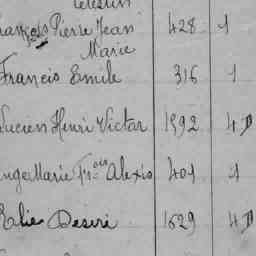 Célestin
François Pierre Jean 428 1
Marie
Francis Emile 316 1
Lucien Henri Victor 1992 4D
Ange Marie Fr.ois Alexis 401 1
Elie Désiré 1629 4D